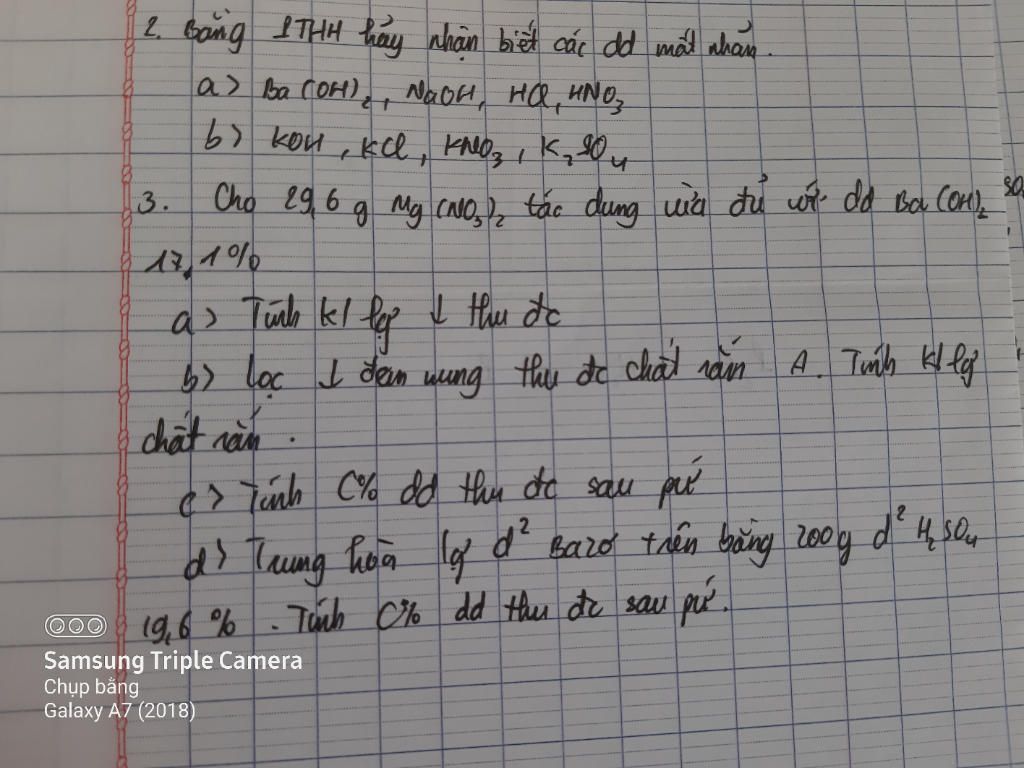 2. Bằng PTHH hãy nhận biết các dd mất nhãn.
a> Ba(OH)₂, NaOH, HCl, HNO₃
b> KOH, KCl, KNO₃, K₂SO₄
3. Cho 29,6 g Mg(NO₃)₂ tác dụng vừa đủ với dd Ba(OH)₂
17,1%
a> Tính klg ↓ thu đc
b> Lọc ↓ đem nung thu đc chất rắn A. Tính klg
chất rắn.
c> Tính C% dd thu đc sau pứ
d> Trung hoà lg d² Bazơ trên bằng 200g d² H₂SO₄
19,6%. Tính C% dd thu đc sau pứ.
Samsung Triple Camera
Chụp bằng
Galaxy A7 (2018)